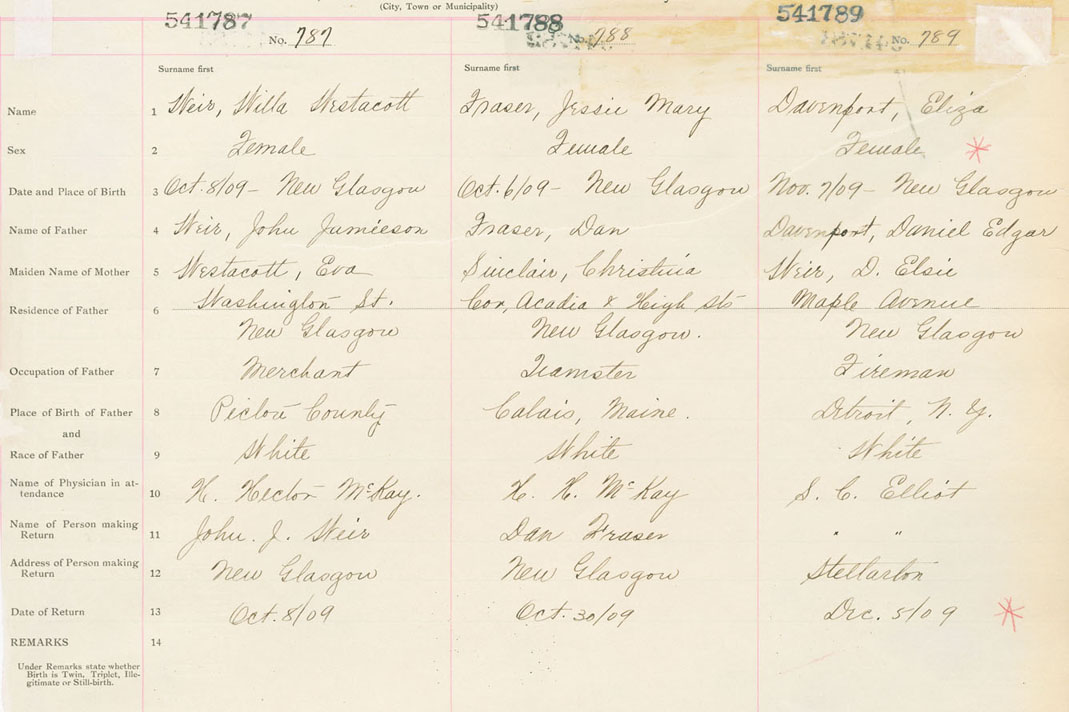 (City, Town or Municipality)
541787 541788 541789
No. 787 No. 788 No. 789
Surname first Surname first Surname first
Name 1 Weir, Willa Westacott Fraser, Jessie Mary Davenport, Eliza
Sex 2 Female Female Female
Date and Place of Birth 3 Oct. 8/09 - New Glasgow Oct. 6/09 - New Glasgow Nov. 7/09 - New Glasgow
Name of Father 4 Weir, John Jamieeson Fraser, Dan Davenport, Daniel Edgar
Maiden Name of Mother 5 Westacott, Eva Sinclair, Christina Weir, D. Elsie
Residence of Father 6 Washington St. Cor, Acadia & High Sts Maple Avenue
New Glasgow New Glasgow. New Glasgow
Occupation of Father 7 Merchant Teamster Fireman
Place of Birth of Father 8 Pictou County Calais, Maine. Detroit, N. Y.
and
Race of Father 9 White White White
Name of Physician in at-
tendance 10 H. Hector McKay. H. H. McKay S. C. Elliot
Name of Person making
Return 11 John. J. Weir Dan Fraser " "
Address of Person making
Return 12 New Glasgow New Glasgow Stellarton
Date of Return 13 Oct. 8/09 Oct. 30/09 Dec. 5/09
REMARKS 14
Under Remarks state whether
Birth is Twin, Triplet, Ille-
gitimate or Still-birth.